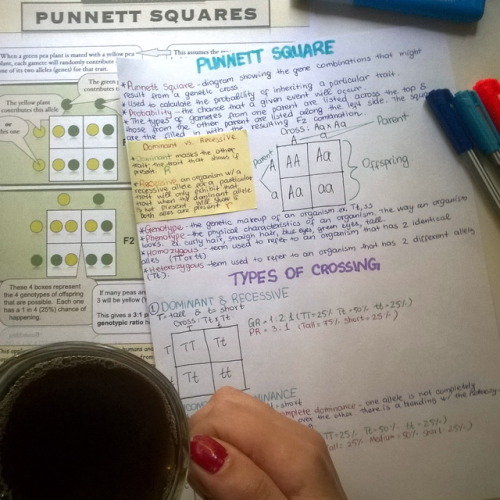 PUNNETT SQUARES
When a green pea plant is mated with a yellow pea
plant, each gamete will randomly contribute
one of its two alleles (genes) for that trait.
This assumes the
The green
contributes t
The yellow plant
contributes this allele
or
this one
F2
These 4 boxes represent
the 4 genotypes of offspring
that are possible. Each one
has a 1 in 4 (25%) chance of
happening.
If many peas ar
3 will be yellow (
This gives a 3:1 p
genotypic ratio
PUNNETT SQUARE
* Punnett Square - diagram showing the gene combinations that might
result from a genetic cross
* Used to calculate the probability of inheriting a particular trait.
* Probability - the chance that a given event will occur.
* The types of gametes from one parent are listed across the top &
those from the other parent are listed along the left side. The squares
are the filled in with the resulting F2 combination.
Dominant vs. Recessive
* Dominant masks the other
trait; the trait that shows if
present
* Recessive an organism w/ a
recessive allele for a particular
trait will only exhibit that
trait when the dominant allele
is not present
Cross: Aa x Aa
Parent
A a
Parent
A AA Aa
a Aa aa
Offspring
* Genotype - the genetic makeup of an organism ex Tt, ss
* Phenotype - the physical characteristics of an organism. The way an organism
looks. Ex. curly hair, straigh hair, blue eyes, green eyes, tall.
* Homozygous - term used to refer to an organism that has 2 identical
alleles (TT or tt)
* Heterozygous - term used to refer to an organism that has 2 different alleles
(Tt).
TYPES OF CROSSING
① DOMINANT & RECESSIVE
T = tall & t = short
Cross: Tt x Tt
T t
T TT Tt
t Tt tt
GR = 1:2:1 (TT = 25% Tt = 50% tt = 25%)
PR = 3:1 (Tall = 75% short = 25%)
MINANCE
short
complete dominance - one allele is not completely
over the other. There is a blending w/ the
TT = 25% Tt = 50% tt = 25%)
Tall: 25% Medium: 50% Short: 25%)